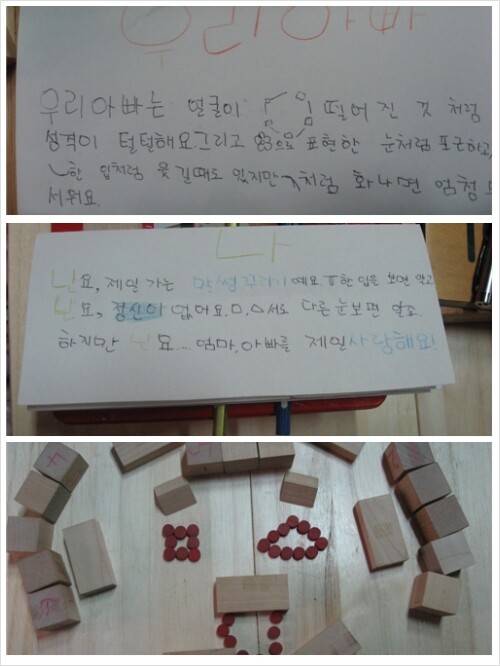 우리아빠
우리아빠는 얼굴이 떨어진 것처럼
성격이 털털해요. 그리고 ㅇㅇ으로 표현한 눈처럼 포근하고,
한 입처럼 웃길때도 있지만 ㅅ처럼 화나면 엄청
서워요.
나
난요, 제일 가는 말썽꾸러기예요. ㅠ한 입을 보면 알고
난요, 정신이 없어요. ㅁ, ㅅ서로 다른 눈보면 알죠.
하지만 난요... 엄마, 아빠를 제일사랑해요!